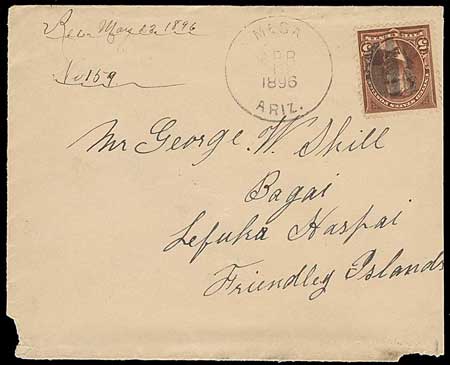 Rec. May 22, 1896
No 159
MESA
APR
1896
ARIZ.
5
Mr George. W. Skill
Bagai
Lefuka Haapai
Friendley Islands